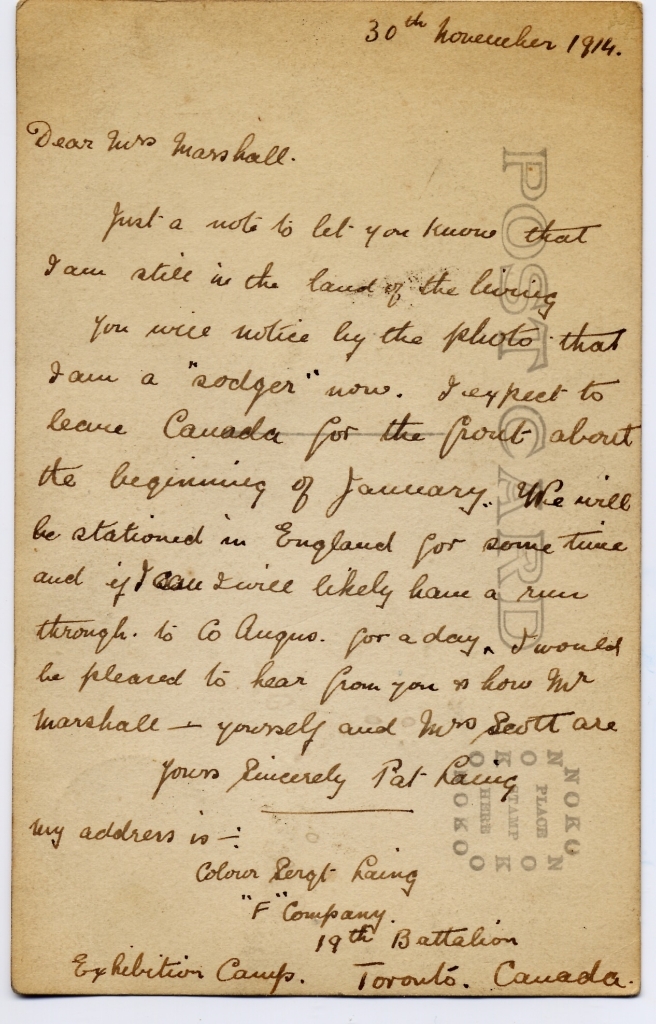 30th November 1914.
Dear Mrs Marshall.
Just a note to let you know that
I am still in the land of the living
You will notice by the photo that
I am a "sodger" now. I expect to
leave Canada for the front about
the beginning of January. We will
be stationed in England for some time
and if I can I will likely have a run
through. to Co Angus. for a day. I would
be pleased to hear from you & how Mr
Marshall — yourself and Mrs Scott are
Yours Sincerely Pat Laing
My address is —:
Colour Sergt Laing
"F" Company.
19th Battalion
Exhibition Camp. Toronto. Canada.
POST CARD
NOKO
N PLACE O
O STAMP N
K HERE K
O O
ONOKO